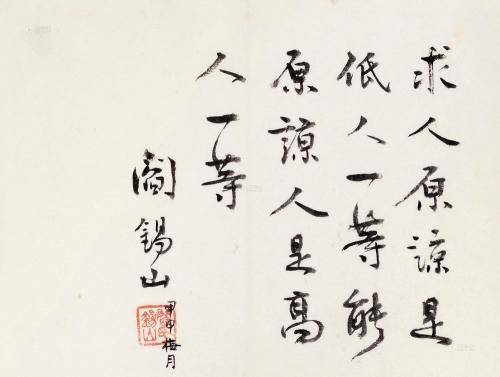 求人原谅是
低人一等能
原谅人是高
人一等
阎锡山
甲申梅月